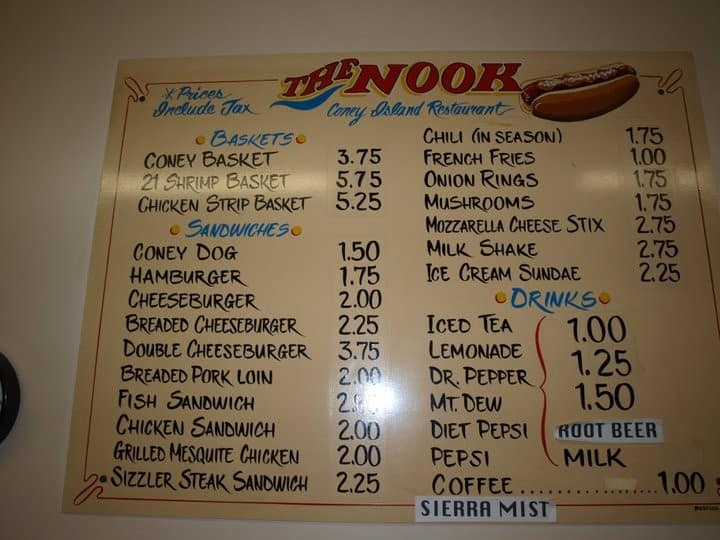 * Prices
Include Tax
THE NOOK
Coney Island Restaurant
BASKETS
CONEY BASKET 3.75
21 SHRIMP BASKET 5.75
CHICKEN STRIP BASKET 5.25
SANDWICHES
CONEY DOG 1.50
HAMBURGER 1.75
CHEESEBURGER 2.00
BREADED CHEESEBURGER 2.25
DOUBLE CHEESEBURGER 3.75
BREADED PORK LOIN 2.00
FISH SANDWICH
CHICKEN SANDWICH 2.00
GRILLED MESQUITE CHICKEN 2.00
SIZZLER STEAK SANDWICH 2.25
CHILI (IN SEASON) 1.75
FRENCH FRIES 1.00
ONION RINGS 1.75
MUSHROOMS 1.75
MOZZARELLA CHEESE STIX 2.75
MILK SHAKE 2.75
ICE CREAM SUNDAE 2.25
DRINKS
ICED TEA 1.00
LEMONADE 1.25
DR. PEPPER 1.50
MT. DEW
DIET PEPSI ROOT BEER
PEPSI MILK
COFFEE ................ 1.00
SIERRA MIST